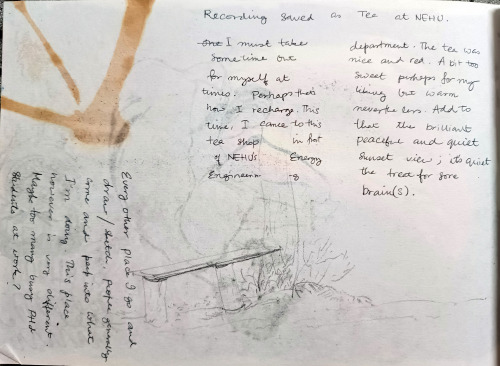 Recording saved as Tea at NEHU.
I must take
some time out
for myself at
times. Perhaps thats
how I recharge. This
time, I came to this
tea shop in front
of NEHU's Energy
Engineerin -g
department. The tea was
nice and red. A bit too
sweet perhaps for my
liking but warm
nevertheless. Add to
that the brilliant
peaceful and quiet
sunset view; its quiet
the treat for sore
brain(s).
Every other place I go and
draw/sketch, People generally
come and peep into what
I'm doing. This place
however is very different.
Maybe too many busy PhD
students at work?